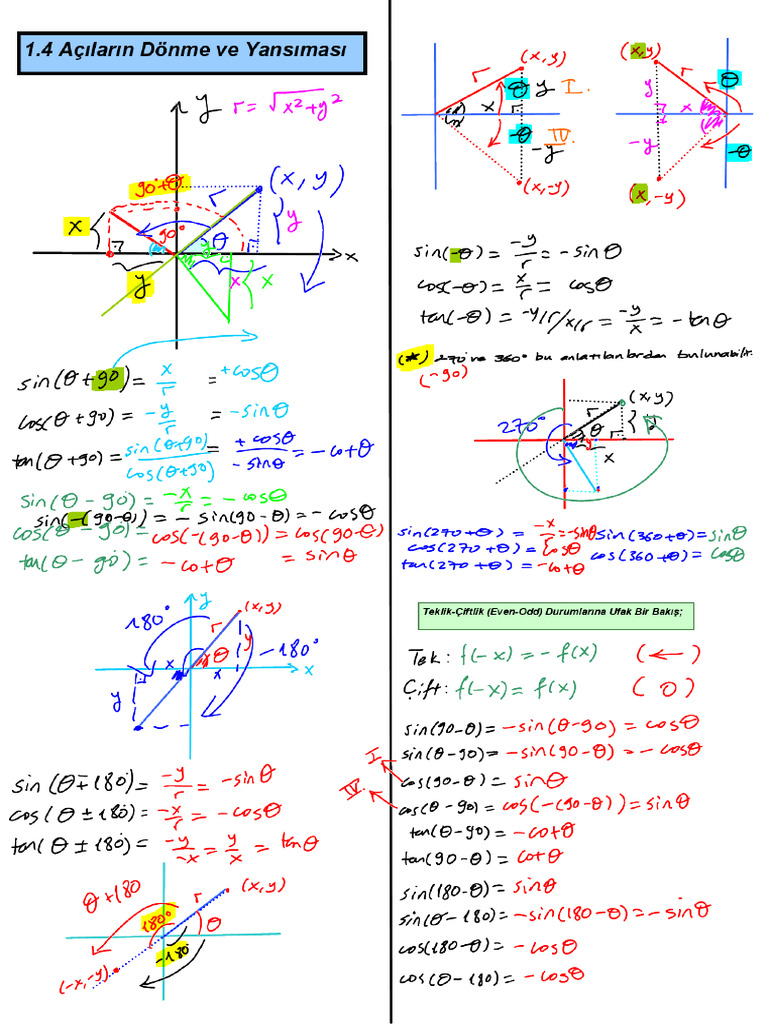 1.4 Açıların Dönme ve Yansıması
y r = √x²+y²
90+θ
(x, y)
r
x
90°
θ
y
y
x
x
x
y
sin(θ+90) = x/r = +cosθ
cos(θ+90) = -y/r = -sinθ
tan(θ+90) = sin(θ+90)/cos(θ+90) = +cosθ/-sinθ = -cotθ
sin(θ-90) = -x/r = -cosθ
sin(-(90-θ)) = -sin(90-θ) = -cosθ
cos(θ-90) = cos(-(90-θ)) = cos(90-θ)
tan(θ-90) = -cotθ = sinθ
y
180°
(x,y)
r
θ
y
-180°
x
x
x
y
sin(θ∓180) = -y/r = -sinθ
cos(θ±180) = -x/r = -cosθ
tan(θ±180) = -y/-x = y/x = tanθ
θ+180
r
(x,y)
180°
θ
-180
(-x,-y)
(x,y)
r
θ y I.
x
-θ IV.
-y
(x,-y)
(x,y)
r
y
θ
x
-y
-θ
(x,-y)
sin(-θ) = -y/r = -sinθ
cos(-θ) = x/r = cosθ
tan(-θ) = -y/r/x/r = -y/x = -tanθ
(*) 270 ve 360° bu anlatılanlardan bulunabilir.
(-90)
270°
(x,y)
r
θ
y
x
sin(270+θ) = -x/r = -sinθ
cos(270+θ) = cosθ
tan(270+θ) = -cotθ
sin(360+θ) = sinθ
cos(360+θ) = cosθ
Teklik-Çiftlik (Even-Odd) Durumlarına Ufak Bir Bakış;
Tek: f(-x) = -f(x) (←)
Çift: f(-x) = f(x) (0)
sin(90-θ) = -sin(θ-90) = cosθ
sin(θ-90) = -sin(90-θ) = -cosθ
I.
cos(90-θ) = sinθ
IV.
cos(θ-90) = cos(-(90-θ)) = sinθ
tan(θ-90) = -cotθ
tan(90-θ) = cotθ
sin(180-θ) = sinθ
sin(θ-180) = -sin(180-θ) = -sinθ
cos(180-θ) = -cosθ
cos(θ-180) = -cosθ